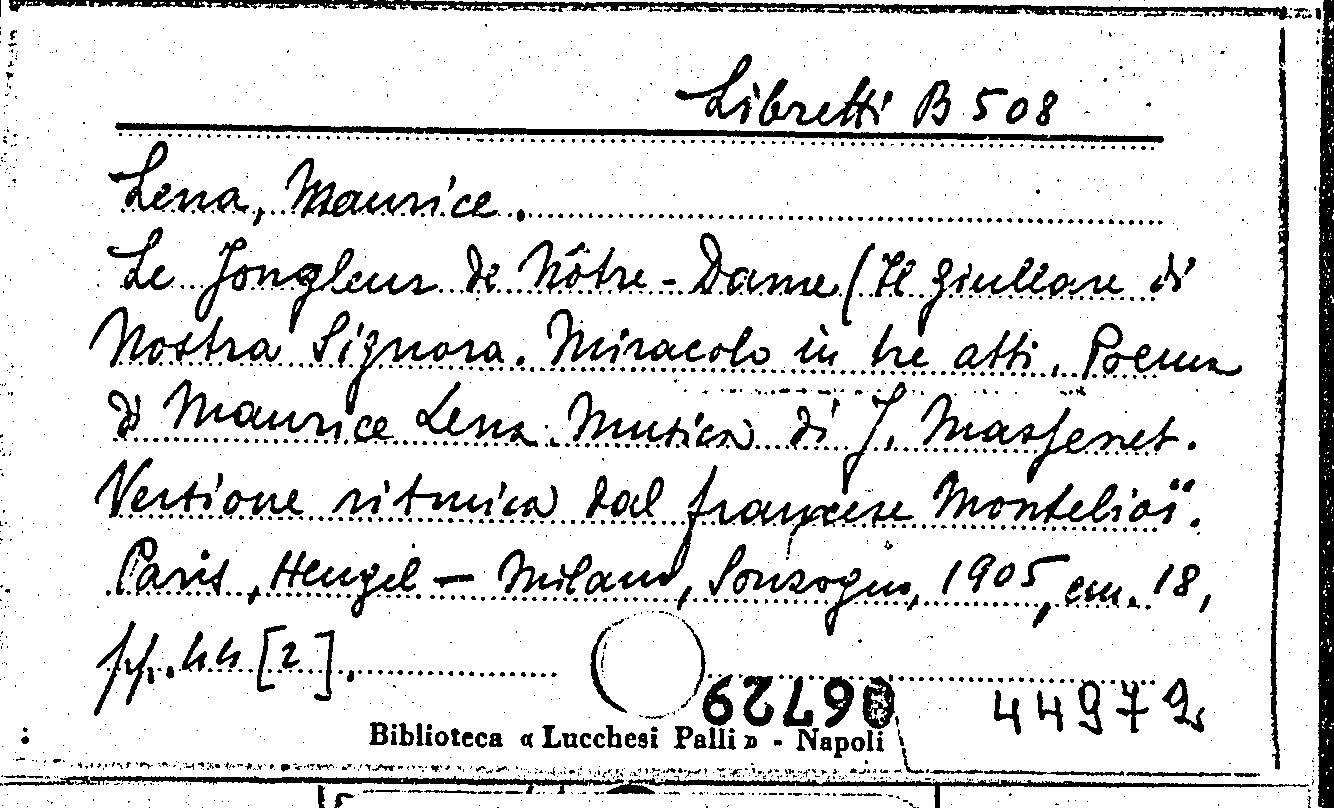 Libretti B 508
Lena, Maurice.
Le Jongleur de Nôtre-Dame (Il Giullare di
Nostra Signora. Miracolo in tre atti. Poema
di Maurice Lena. Musica di J. Massenet.
Versione ritmica dal francese Montelioï.
Paris, Heugel — Milano, Sonzogno, 1905, cm. 18,
pp. 44 [2].
62790 44972
Biblioteca « Lucchesi Palli » - Napoli